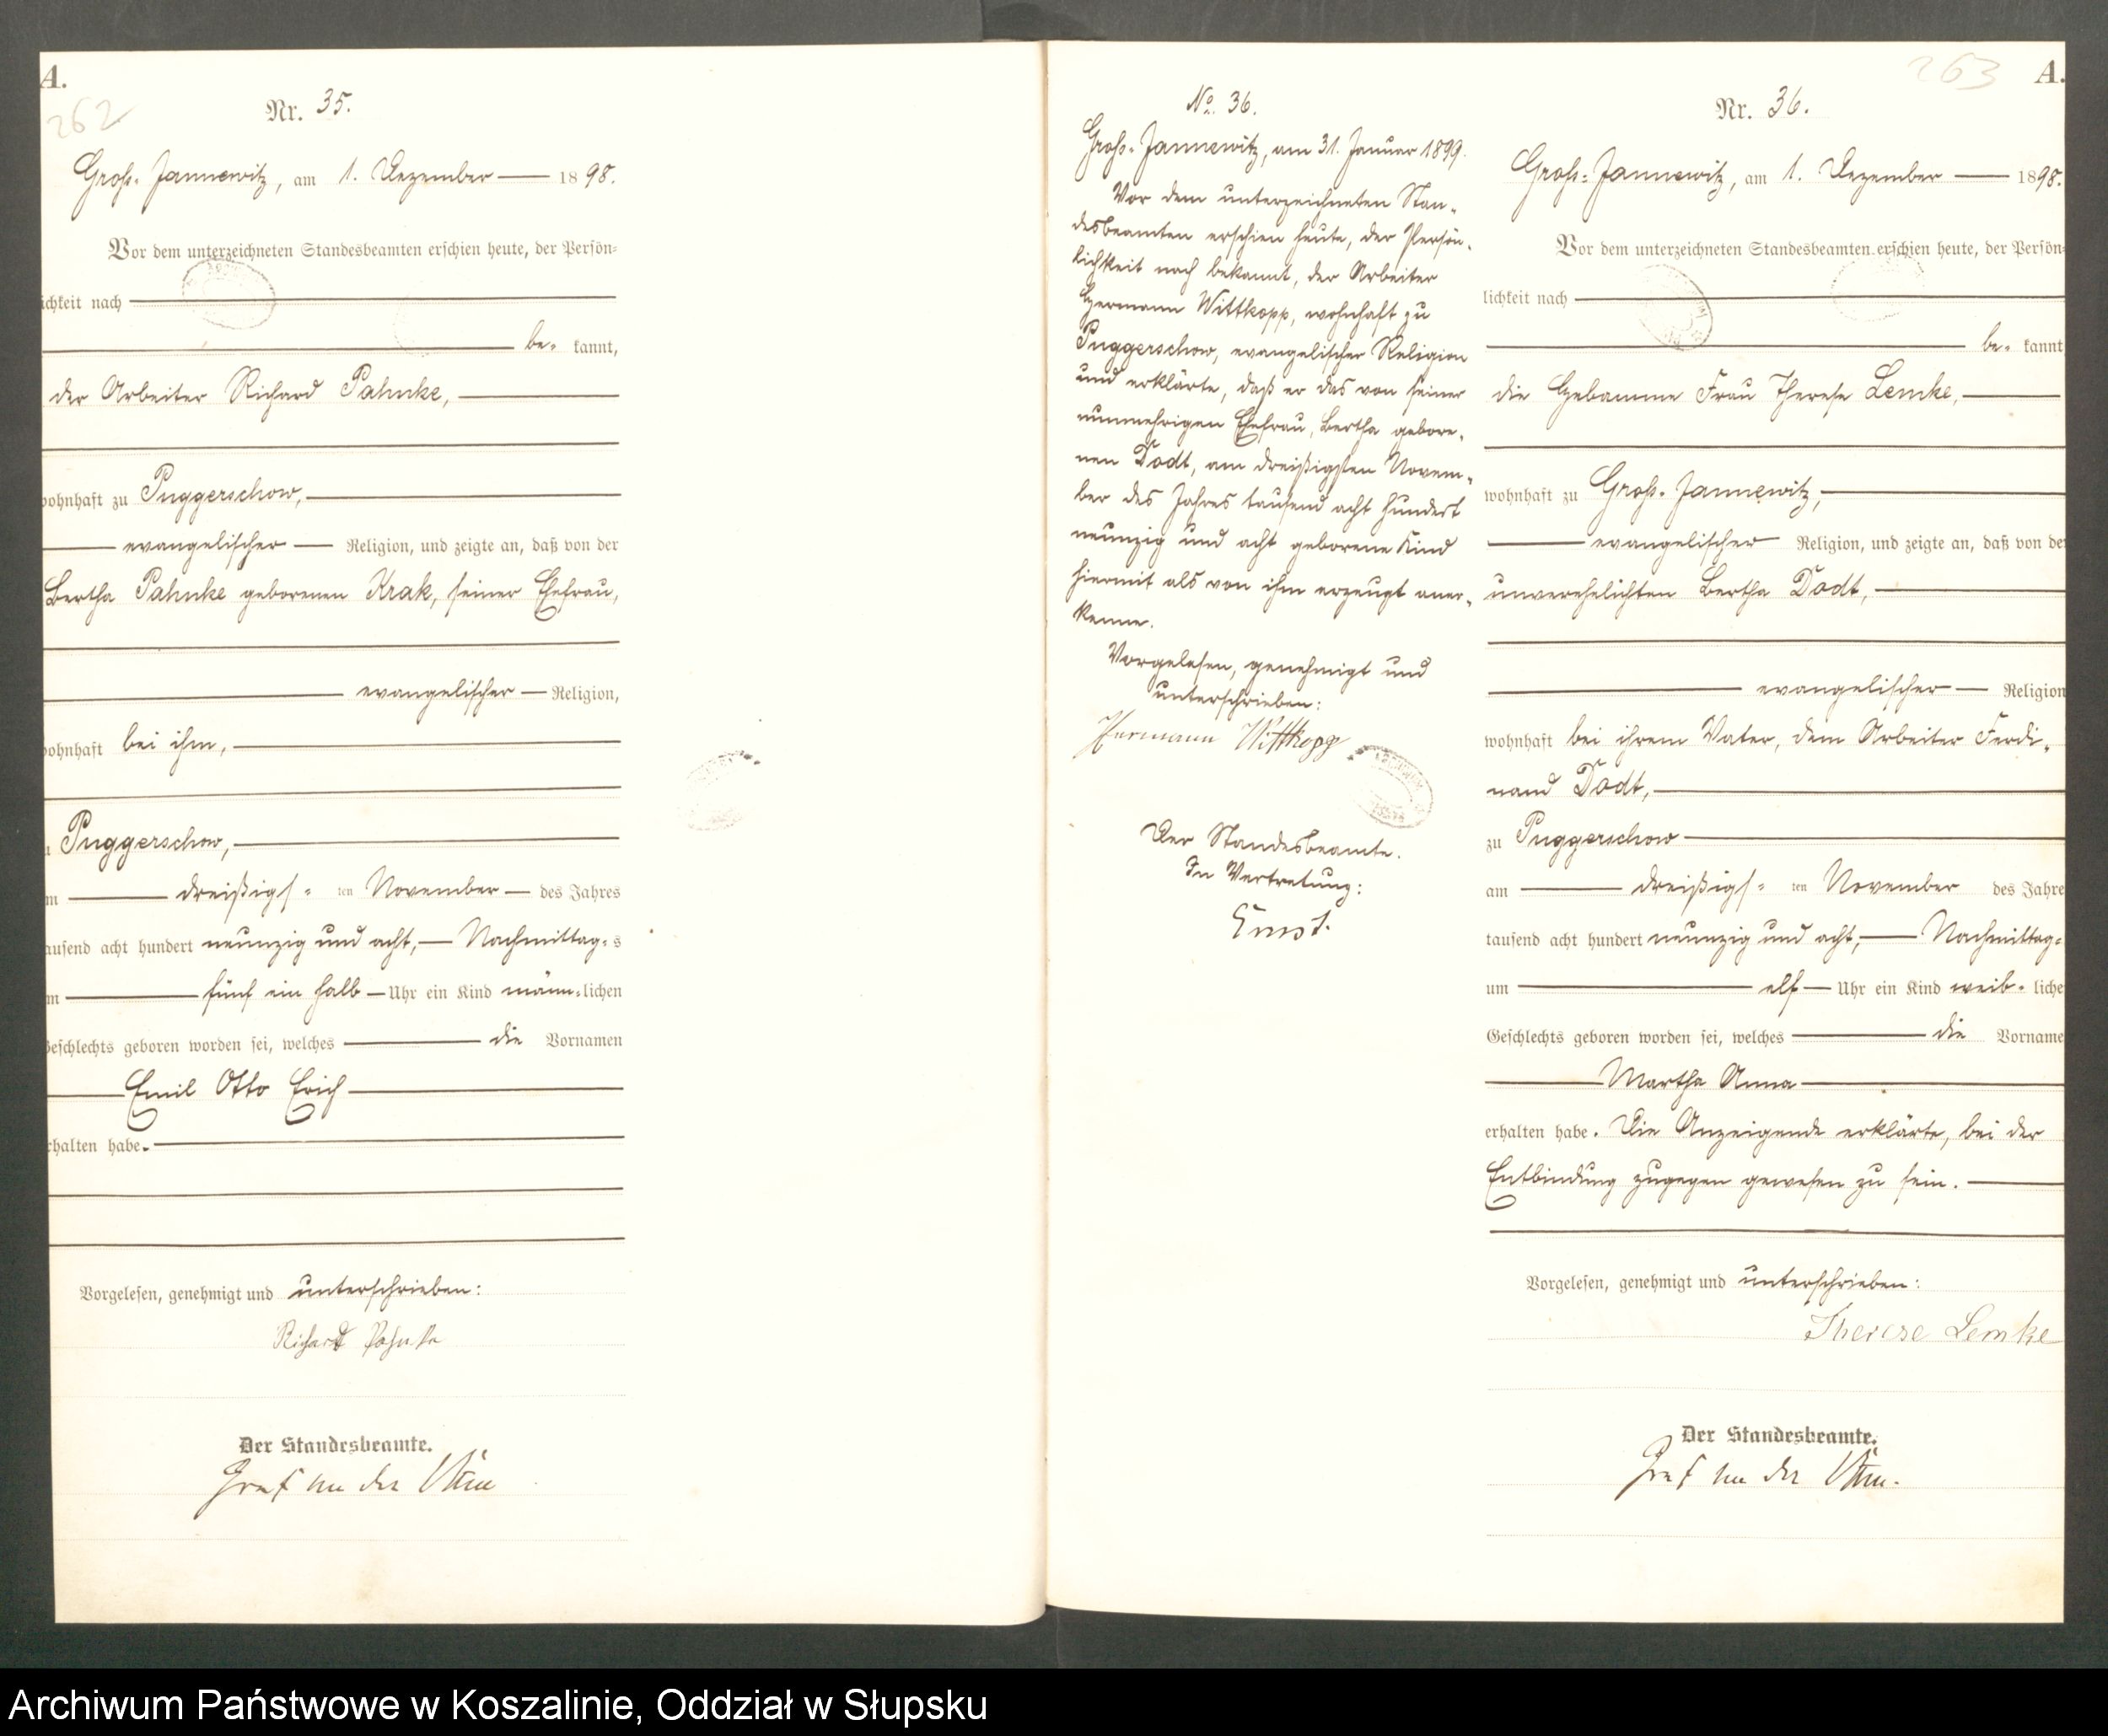 A.
262
Nr. 35.
Groß-Jannewitz, am 1. Dezember 1898.
Vor dem unterzeichneten Standesbeamten erschien heute, der Persön-
lichkeit nach
be- kannt,
der Arbeiter Richard Pahnke,
wohnhaft zu Puggerschow,
evangelischer Religion, und zeigte an, daß von der
Bertha Pahnke geborenen Krak, seiner Ehefrau,
evangelischer Religion,
wohnhaft bei ihm,
zu Puggerschow,
am dreißigs-ten November des Jahres
tausend acht hundert neunzig und acht, Nachmittag-s
um fünf ein halb Uhr ein Kind männ-lichen
Geschlechts geboren worden sei, welches die Vornamen
Emil Otto Erich
erhalten habe.
Vorgelesen, genehmigt und unterschrieben:
Richard Pahnke
Der Standesbeamte.
Graf
No. 36.
Groß-Jannewitz, am 31. Januar 1899.
Vor dem unterzeichneten Stan-
desbeamten erschien heute, der Persön-
lichkeit nach bekannt, der Arbeiter
Hermann Wittkopp, wohnhaft zu
Puggerschow, evangelischer Religion
und erklärte, daß er das von seiner
nunmehrigen Ehefrau, Bertha gebore-
nen Dodt, am dreißigsten Novem-
ber des Jahres tausend acht hundert
neunzig und acht geborene Kind
hiermit als von ihm erzeugt aner-
kenne.
Vorgelesen, genehmigt und
unterschrieben:
Hermann Wittkopp
Der Standesbeamte.
In Vertretung:
Ernst.
263
A.
Nr. 36.
Groß-Jannewitz, am 1. Dezember 1898.
Vor dem unterzeichneten Standesbeamten erschien heute, der Persön-
lichkeit nach
be- kannt
die Hebamme Frau Therese Lemke,
wohnhaft zu Groß-Jannewitz,
evangelischer Religion, und zeigte an, daß von der
unverehelichten Bertha Dodt,
evangelischer Religion
wohnhaft bei ihrem Vater, dem Arbeiter Ferdi-
nand Dodt,
zu Puggerschow
am dreißigs-ten November des Jahre
tausend acht hundert neunzig und acht, Nachmittag-
um elf Uhr ein Kind weib-liche
Geschlechts geboren worden sei, welches die Vorname
Martha Anna
erhalten habe. Die Anzeigende erklärte, bei der
Entbindung zugegen gewesen zu sein.
Vorgelesen, genehmigt und unterschrieben:
Therese Lemke
Der Standesbeamte.
Graf
Archiwum Państwowe w Koszalinie, Oddział w Słupsku